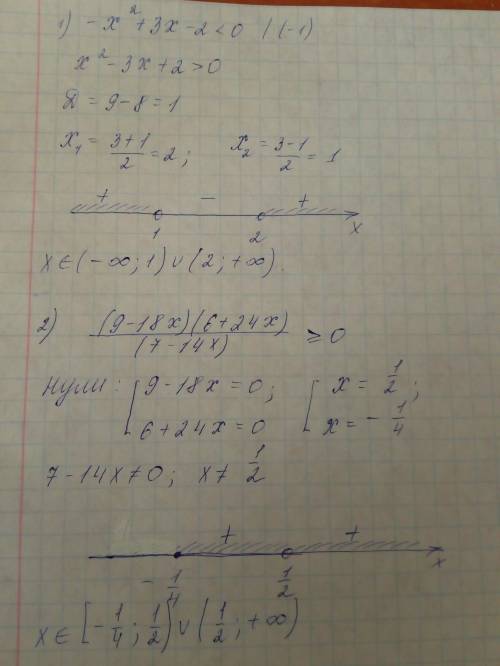 1) -x² + 3x - 2 < 0 | (-1)
x² - 3x + 2 > 0
Д = 9 - 8 = 1
x₁ = (3+1)/2 = 2; x₂ = (3-1)/2 = 1
+ - +
1 2 x
x ∈ (-∞; 1) ∪ (2; +∞).
2) (9-18x)(6+24x)/(7-14x) ≥ 0
Нули: [9-18x = 0; [x = 1/2;
6+24x = 0 x = -1/4
7-14x ≠ 0; x ≠ 1/2
+ +
-1/4 1/2 x
x ∈ [-1/4; 1/2) ∪ (1/2; +∞)